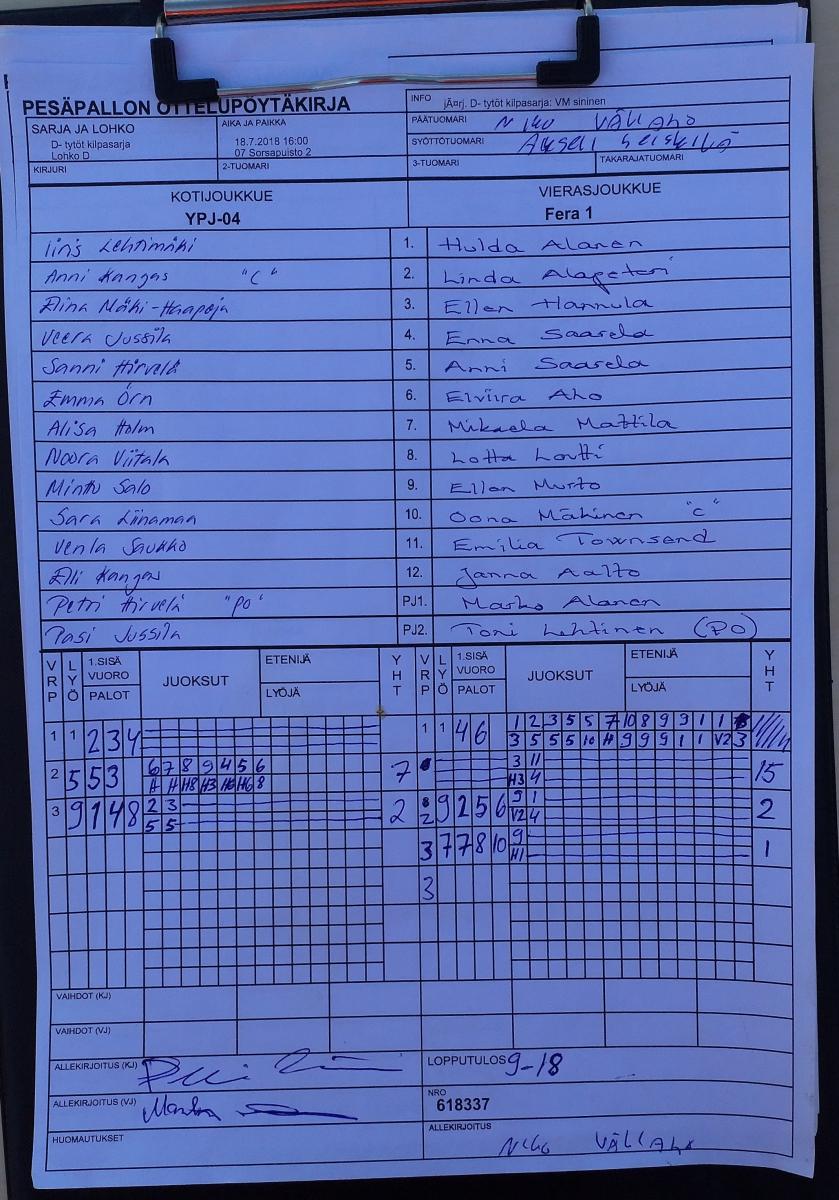 PESÄPALLON OTTELUPÖYTÄKIRJA
INFO jÄ¤rj. D- tytöt kilpasarja: VM sininen
SARJA JA LOHKO
D- tytöt kilpasarja
Lohko D
AIKA JA PAIKKA
18.7.2018 16:00
07 Sorsapuisto 2
PÄÄTUOMARI Niko Vällaho
SYÖTTÖTUOMARI
KIRJURI
2-TUOMARI
3-TUOMARI
TAKARAJATUOMARI
KOTIJOUKKUE
YPJ-04
VIERASJOUKKUE
Fera 1
Iiris Lehtimäki 1. Hulda Alanen
Anni Kangas "C" 2. Linda Alapeteri
Elina Mäki-Haapoja 3. Ellen Hannula
Veera Jussila 4. Enna Saarela
Sanni Hirvelä 5. Anni Saarela
Emma Örn 6. Elviira Aho
Alisa Holm 7. Mikaela Mattila
Noora Viitala 8. Lotta Loutti
Minttu Salo 9. Ellen Murto
Sara Liinamaa 10. Oona Mäkinen "C"
Venla Saukko 11. Emilia Townsend
Elli Kangas 12. Janna Aalto
Petri Hirvelä "PO" PJ1. Marko Alanen
Pasi Jussila PJ2. Toni Lehtinen (PO)
VRP LYÖ 1.SISÄ VUORO PALOT JUOKSUT ETENIJÄ LYÖJÄ YHT VRP LYÖ 1.SISÄ VUORO PALOT JUOKSUT ETENIJÄ LYÖJÄ YHT
1 1 2 3 4 1 1 4 6 1 2 3 5 5 7 10 8 9 9 1 1
3 5 5 5 10 H 9 9 9 1 1 V2 3
2 5 5 3 6 7 8 9 4 5 6 7 3 11 15
H H H8 H3 H6 H6 8 H3 4
3 9 1 4 8 2 3 2 2 9 2 5 6 9 1 2
5 5 V2 4
3 7 7 8 10 9 1
H1
3
VAIHDOT (KJ)
VAIHDOT (VJ)
ALLEKIRJOITUS (KJ)
LOPPUTULOS 9-18
ALLEKIRJOITUS (VJ)
NRO
618337
HUOMAUTUKSET
ALLEKIRJOITUS
Niko Vällaho